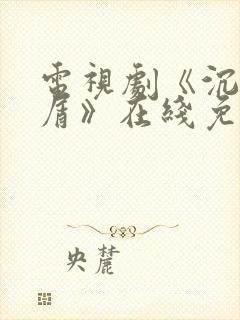 電視劇《沉
盾》在綫免
央麓